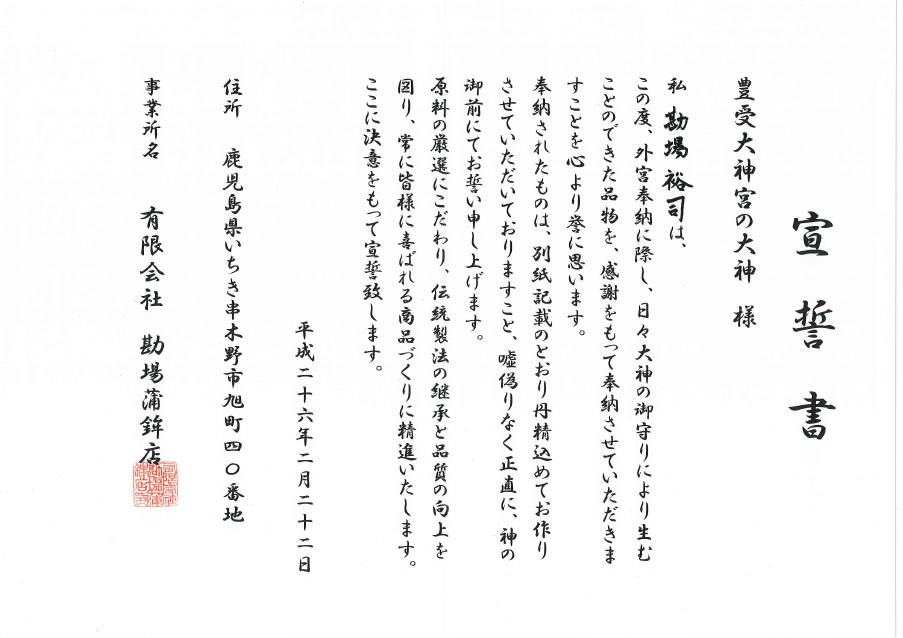 宣誓書
豊受大神宮の大神 様
私 勘場裕司は、
この度、外宮奉納に際し、日々大神の御守りにより生む
ことのできた品物を、感謝をもって奉納させていただきま
すことを心より誉に思います。
奉納されたものは、別紙記載のとおり丹精込めてお作り
させていただいておりますこと、嘘偽りなく正直に、神の
御前にてお誓い申し上げます。
原料の厳選にこだわり、伝統製法の継承と品質の向上を
図り、常に皆様に喜ばれる商品づくりに精進いたします。
ここに決意をもって宣誓致します。
平成二十六年二月二十二日
住所 鹿児島県いちき串木野市旭町四〇番地
事業所名 有限会社 勘場蒲鉾店